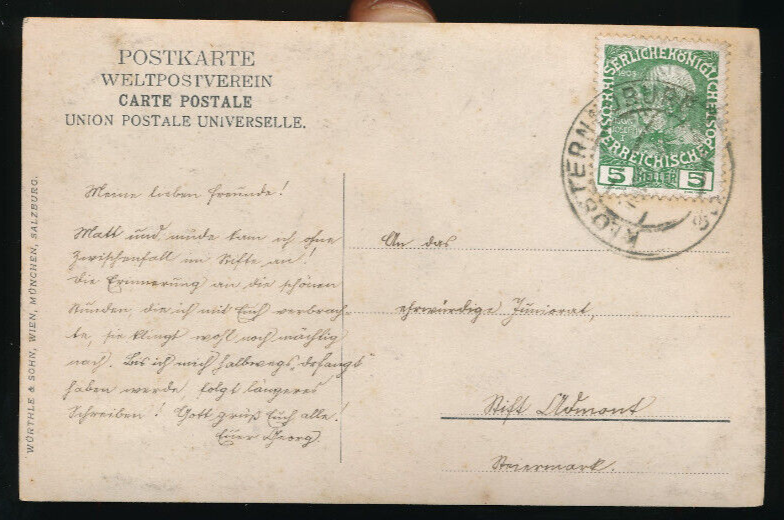 POSTKARTE
WELTPOSTVEREIN
CARTE POSTALE
UNION POSTALE UNIVERSELLE.
WÜRTHLE & SOHN, WIEN, MÜNCHEN, SALZBURG.
Meine lieben Freunde!
Matt und müde kam ich ohne
Zwischenfall im Stifte an!
Die Erinnerung an die schönen
Stunden, die ich mit Euch verbrach-
te, sie klingt wohl noch mächtig
nach. Bis ich mich halbwegs
haben werde, folgt längeres
Schreiben! Gott grüß Euch alle!
Euer Georg.
An das
ehrwürdige Juniorat,
Stift Admont
Steiermark.
KAISERLICHE KÖNIGLICHE
ÖSTERREICHISCHE POST
1908
5 HELLER 5
KLOSTERNEUBURG